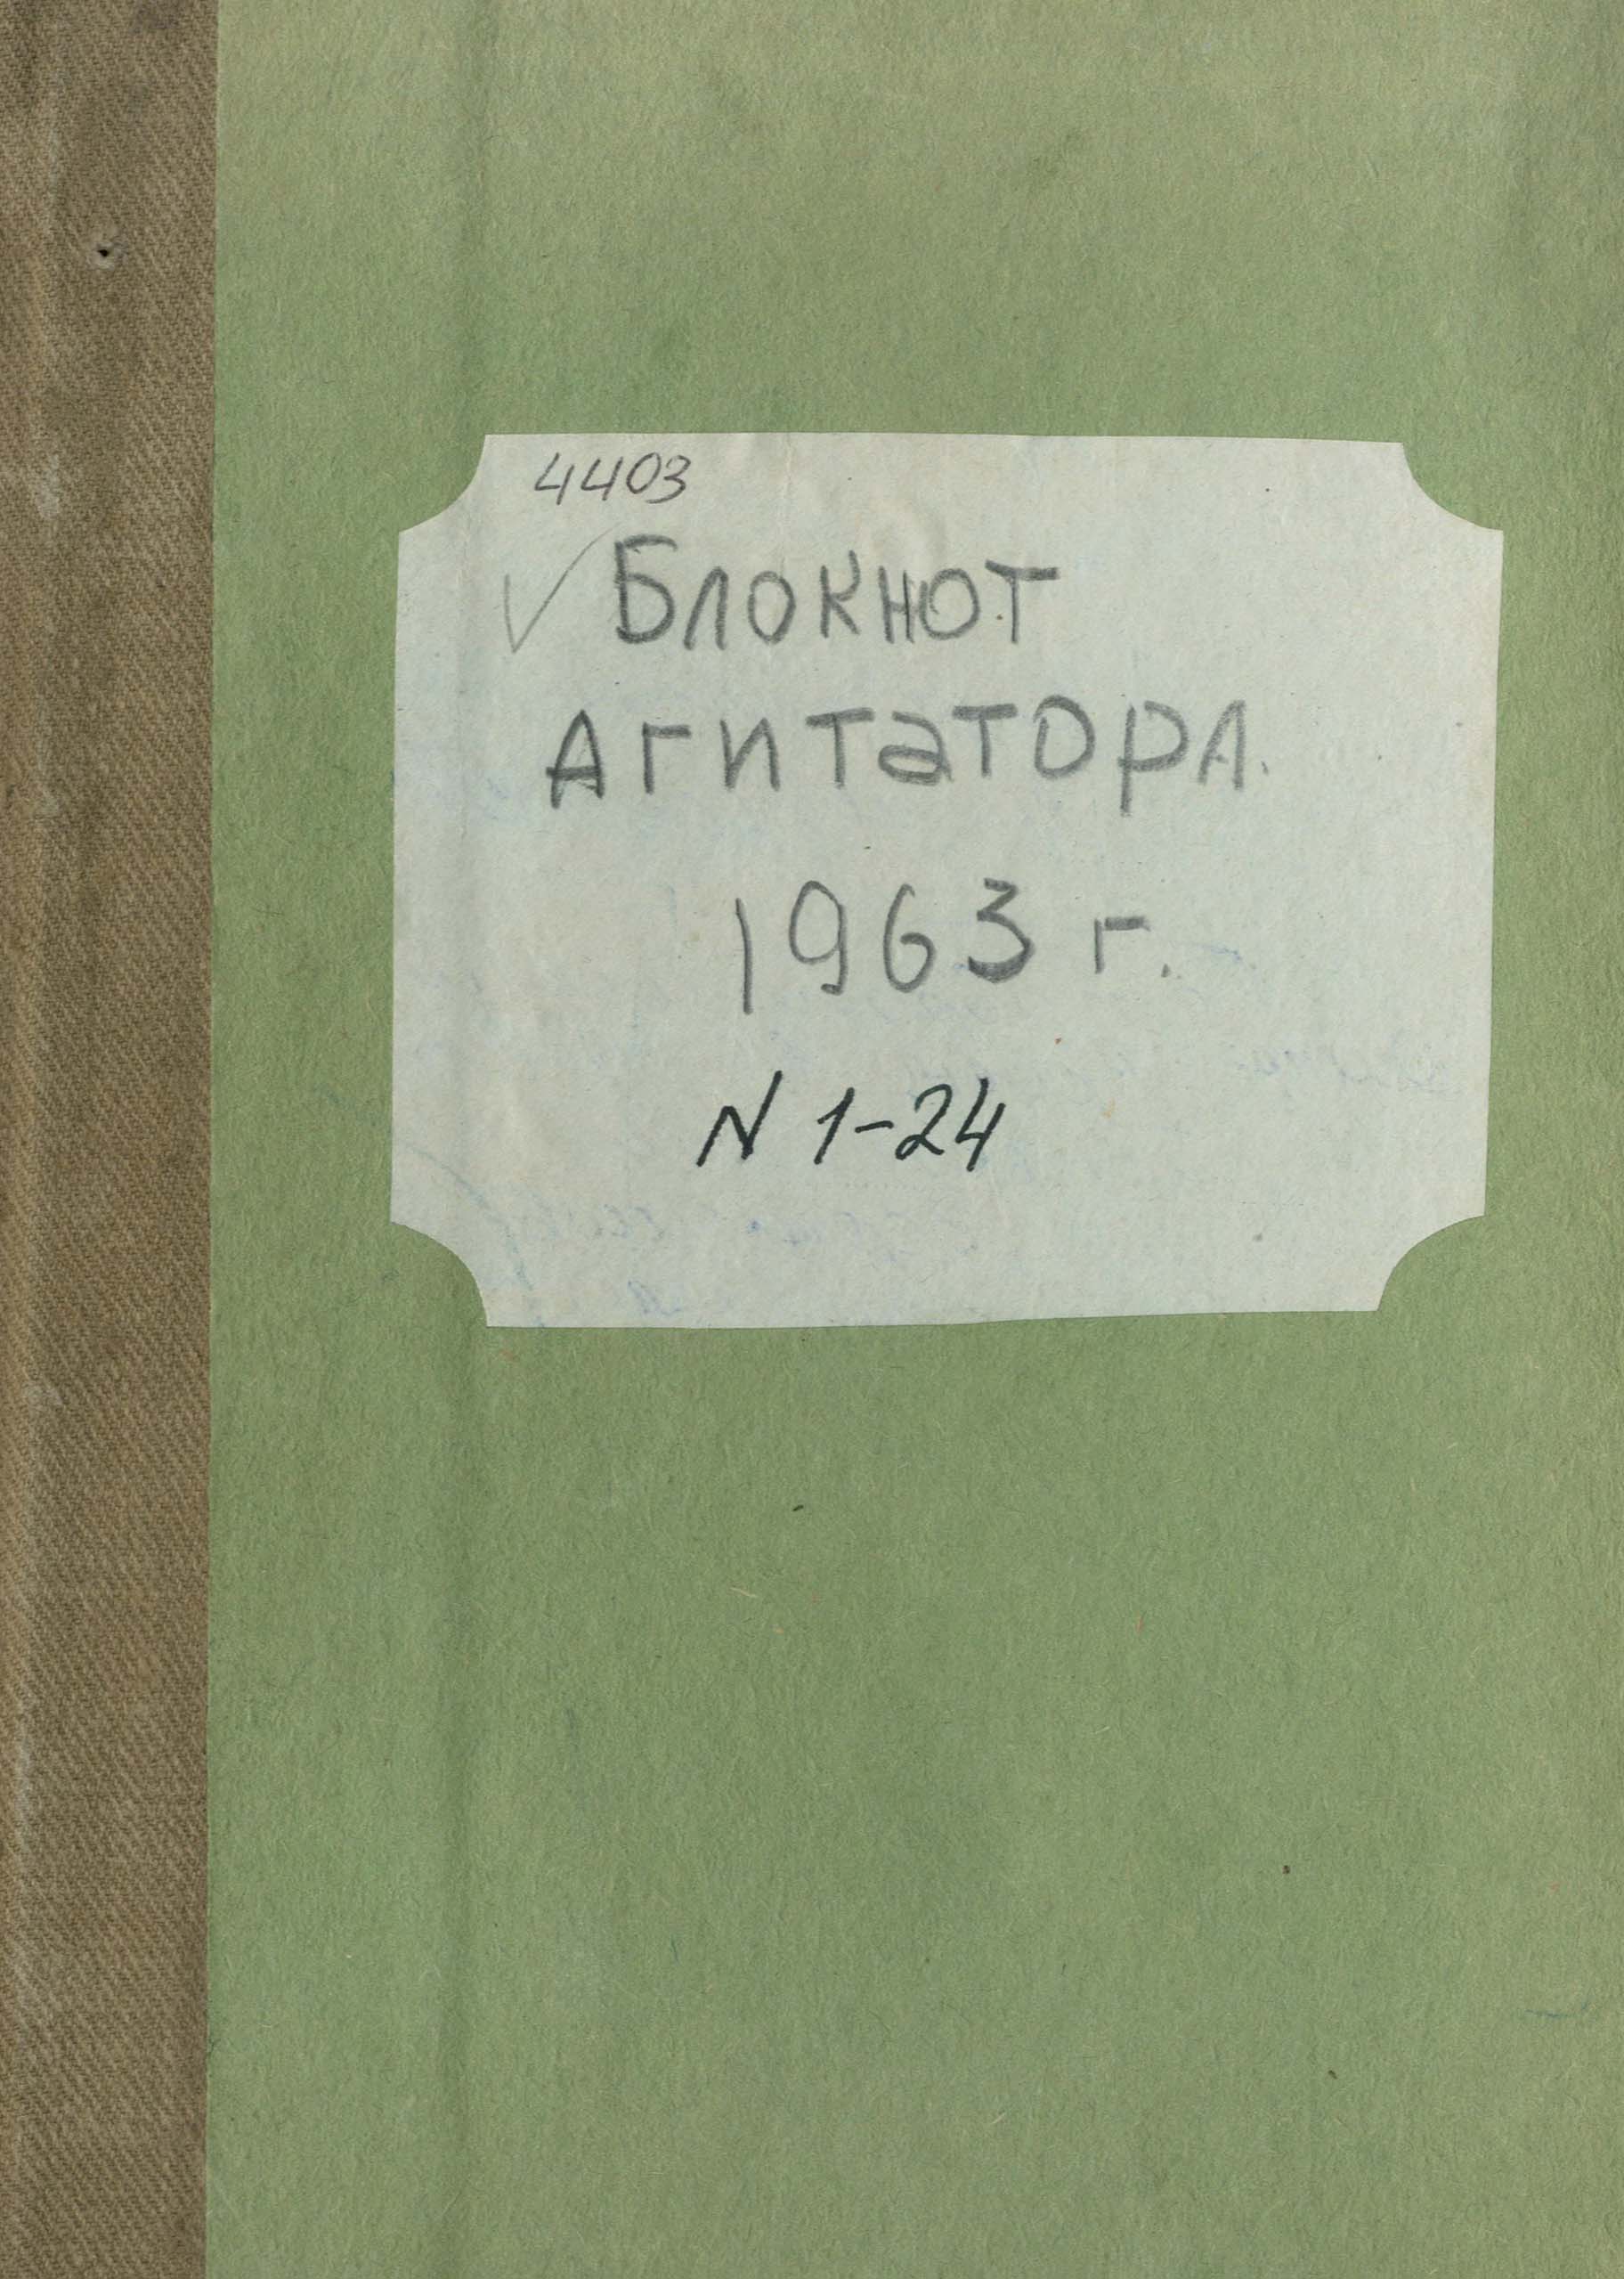 4403
✓ Блокнот
Агитатора.
1963 г.
N 1-24